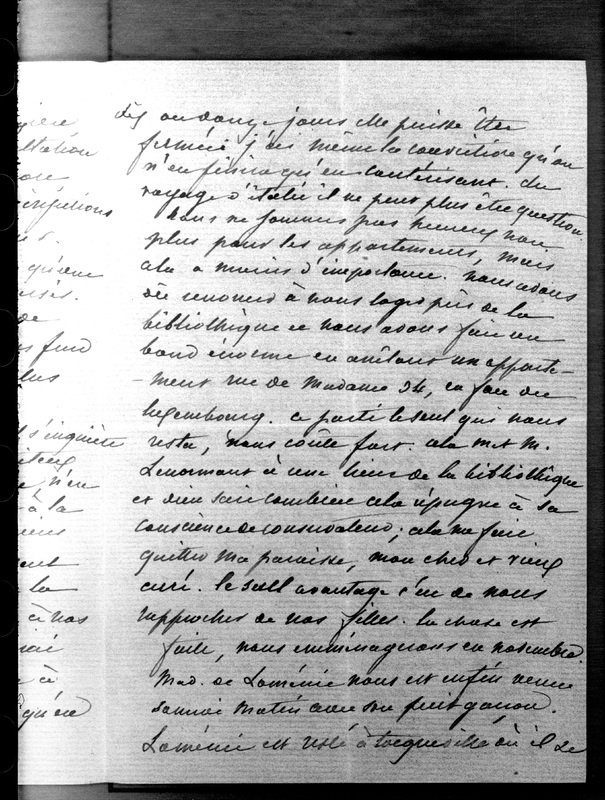 dix ou douze jours elle puisse être
fermée j'ai même la conviction qu'on
n'en finira qu'en cautérisant. du
voyage d'Italie il ne peut plus être question.
nous ne sommes pas heureux non
plus pour les appartements, mais
cela a moins d'importance. nous avons
dû renoncer à nous loger près de la
bibliothèque et nous avons fait un
bond énorme en arrêtant un apparte-
-ment rue de Madame 34, en face du
luxembourg. ce parti le seul qui nous
resta, nous coûte fort. cela met M.
Lenormant à une lieue de la bibliothèque
et dieu sait combien cela répugne à sa
conscience de conservateur; cela me fait
quitter ma paroisse, mon cher et vieux
curé. le seul avantage c'est de nous
rapprocher de nos filles. la chose est
faite, nous emménagerons en novembre.
Mad. de Loménie nous est enfin venue
samedi matin avec son petit garçon.
Loménie est resté à tocqueville où il se
gière
à la
à nos
qu'en
s'inquiète
n'en